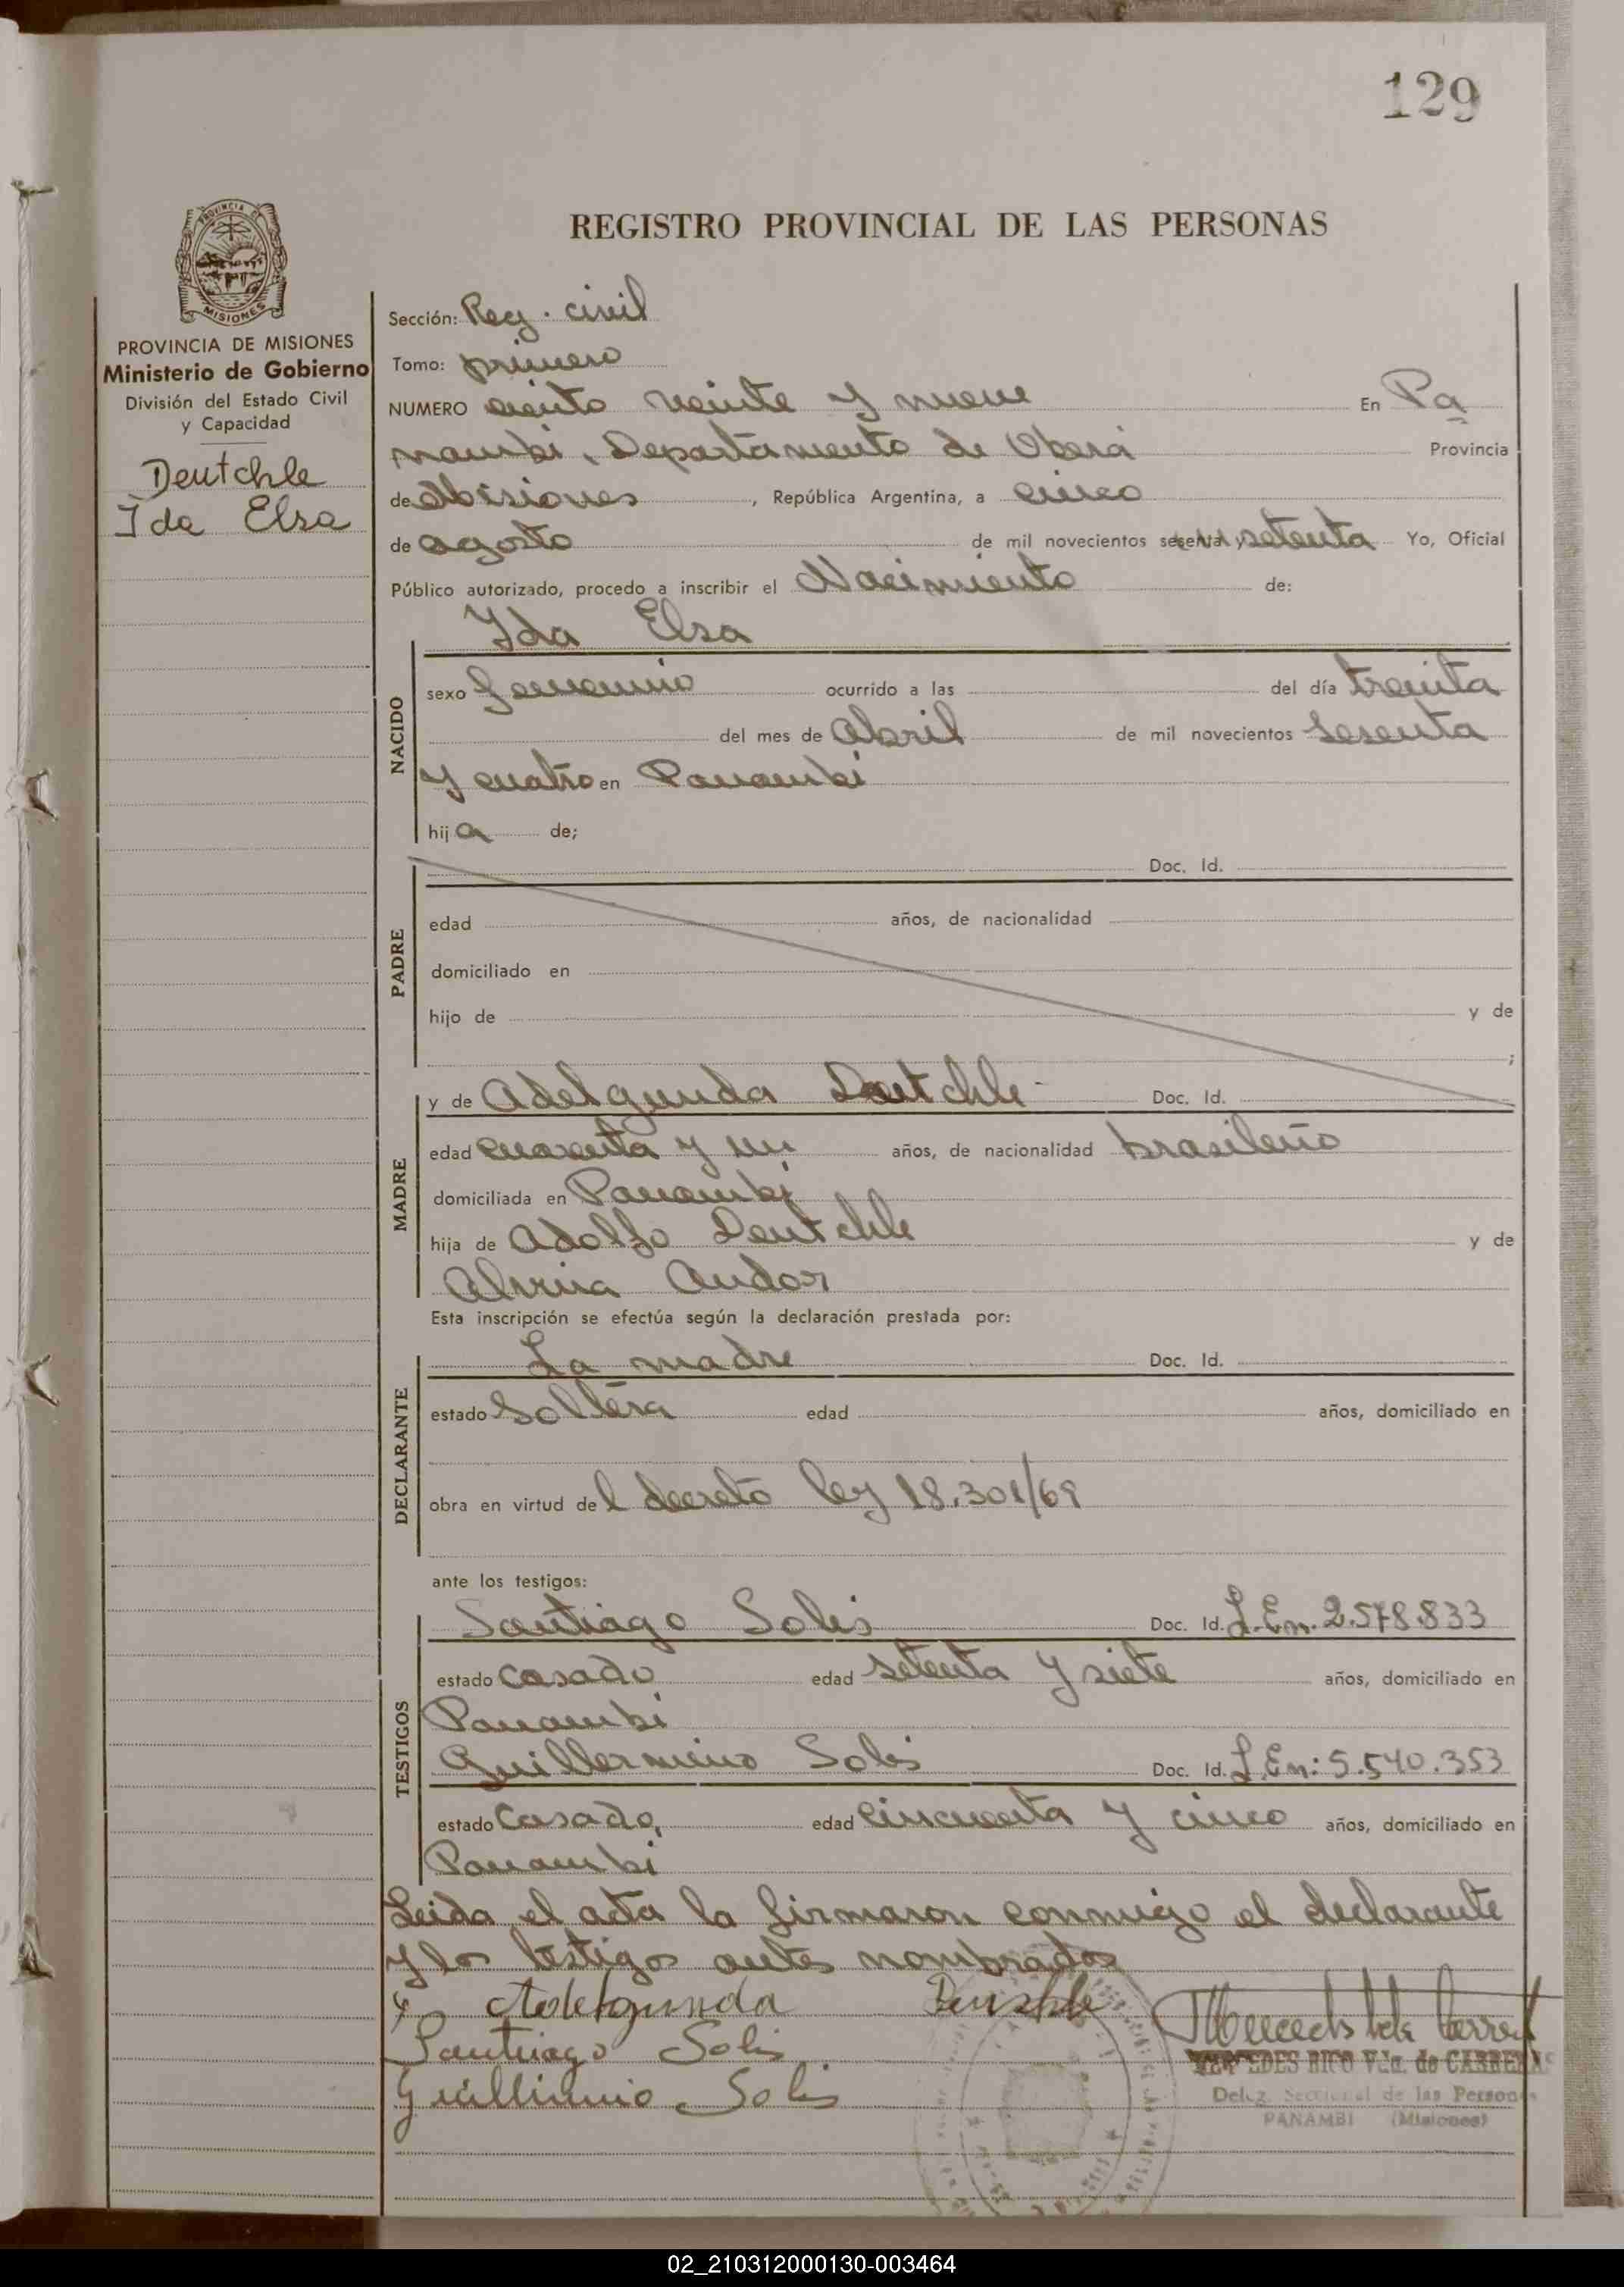 129
PROVINCIA DE
MISIONES
PROVINCIA DE MISIONES
Ministerio de Gobierno
División del Estado Civil
y Capacidad
Deutchle
Ida Elsa
REGISTRO PROVINCIAL DE LAS PERSONAS
Sección: Reg. civil
Tomo: primero
NUMERO ciento veinte y nueve En Pa
nambi, Departamento de Oberá Provincia
de Misiones, República Argentina, a cinco
de agosto de mil novecientos sesenta y setenta Yo, Oficial
Público autorizado, procedo a inscribir el Nacimiento de:
Ida Elsa
NACIDO
sexo Femenino ocurrido a las del día treinta
del mes de Abril de mil novecientos sesenta
y cuatro en Panambi
hija de;
PADRE
Doc. Id.
edad años, de nacionalidad
domiciliado en
hijo de y de
;
MADRE
y de Adelgunda Deutchle Doc. Id.
edad cuarenta y un años, de nacionalidad brasileño
domiciliada en Panambi
hija de Adolfo Deutchle y de
Alvina Andor
Esta inscripción se efectúa según la declaración prestada por:
DECLARANTE
La madre Doc. Id.
estado Soltera edad años, domiciliado en
obra en virtud del decreto ley 18.301/69
ante los testigos:
TESTIGOS
Santiago Solis Doc. Id. L.En. 2.578.833
estado casado edad setenta y siete años, domiciliado en
Panambi
Guillermino Solis Doc. Id. L.En: 5.540.353
estado casado, edad cincuenta y cinco años, domiciliado en
Panambi
Leida el acta la firmaron conmigo el declarante
y los testigos antes nombrados
Adelgunda
Santiago Solis
Guillermino Solis
MERCEDES RICO Vda. de CABRERA
Deleg. Seccional de las Personas
PANAMBI (Misiones)
02_210312000130-003464